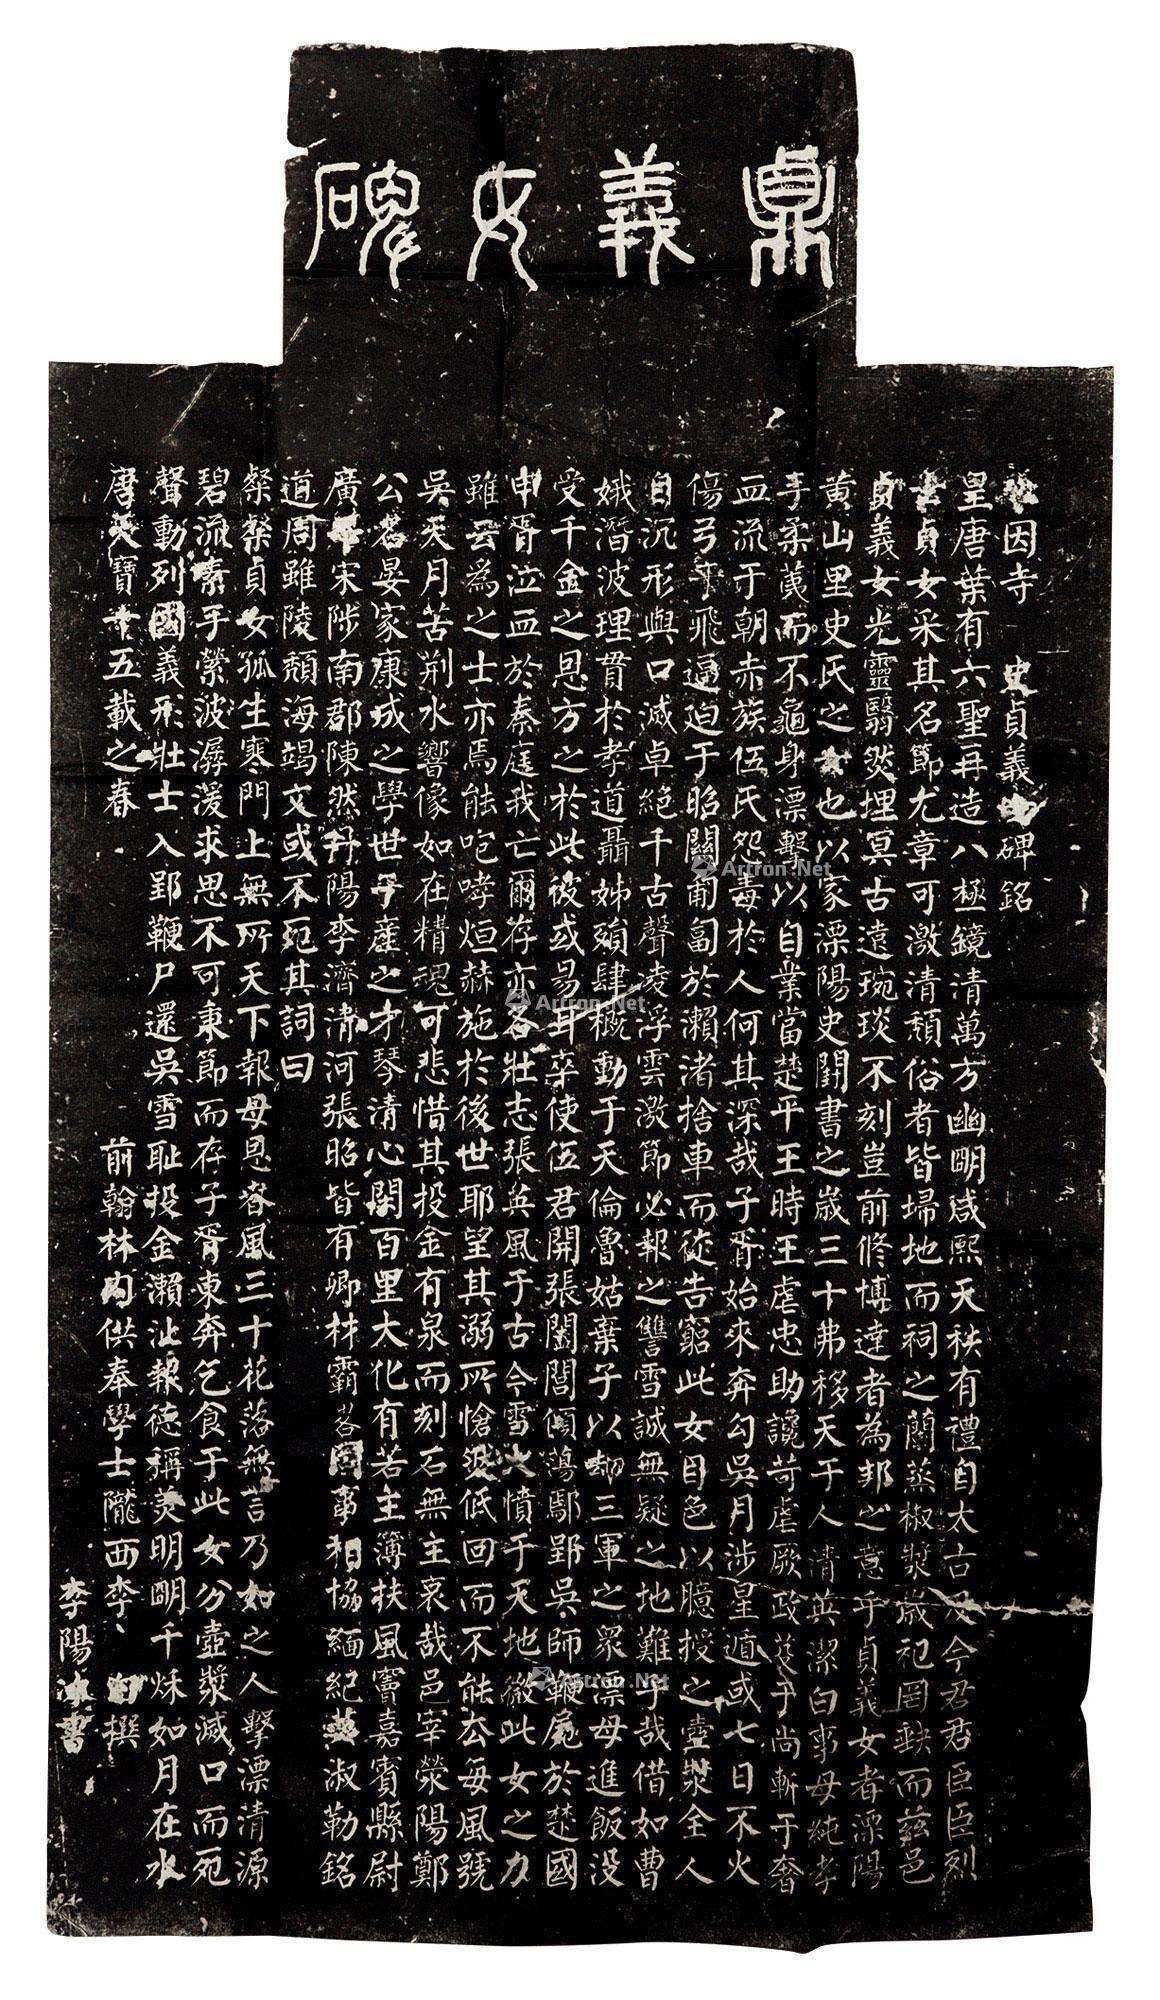 貞義女碑
因寺 史貞義女碑銘
皇唐葉有六聖再造八極鏡清萬方幽明咸熙天秩有禮自太古及今君君臣臣烈
士貞女采其名節尤章可激清頹俗者皆埽地而祠之蘭蒸椒漿歲祀罔缺而茲邑
貞義女光靈翳然埋冥古遠琬琰不刻豈前修博達者為邦之意乎貞義女者溧陽
黃山里史氏之女也以家溧陽史闕書之歲三十弗移天于人清英潔白事母純孝
手柔荑而不龜身漂擊以自業當楚平王時王虐忠助讒苛虐厥政芟于尚斬于奢
血流于朝赤族伍氏怨毒於人何其深哉子胥始來奔勾吳月涉星遁或七日不火
傷弓于飛逼迫于昭關匍匐於瀨渚捨車而徒告窮此女目色以臆授之壺漿全人
自沉形與口滅卓絕千古聲凌浮雲激節必報之讐雪誠無疑之地難乎哉借如曹
娥潛波理貫於孝道聶姊殞肆概動于天倫魯姑棄子以卻三軍之眾漂母進飯沒
受千金之恩方之於此彼或易耳卒使伍君開張闔閭傾蕩鄢郢吳師鞭屍於楚國
申胥泣血於秦庭我亡爾存亦各壯志張英風于古今雪大憤于天地微此女之力
雖云為之士亦焉能咆哮烜赫施於後世耶望其溺所愴然低回而不能去每風號
吳天月苦荊水響像如在精魂可悲惜其投金有泉而刻石無主哀哉邑宰滎陽鄭
公名晏家康成之學世子產之才琴清心閑百里大化有若主簿扶風竇嘉賓縣尉
廣平宋陟南郡陳然丹陽李濟清河張昭皆有卿材霸略同事相協緬紀英淑勒銘
道周雖陵頹海竭文或不死其詞曰
粲粲貞女孤生寒門上無所天下報母恩春風三十花落無言乃如之人擊漂清源
碧流素手縈波潺湲求思不可秉節而存子胥東奔乞食于此女分壺漿滅口而死
聲動列國義形壯士入郢鞭尸還吳雪恥投金瀨沚報德稱美明明千秋如月在水
唐天寶十五載之春 前翰林內供奉學士隴西李白撰
李陽冰書
Artron.Net
Artron.Net
Artron.Net